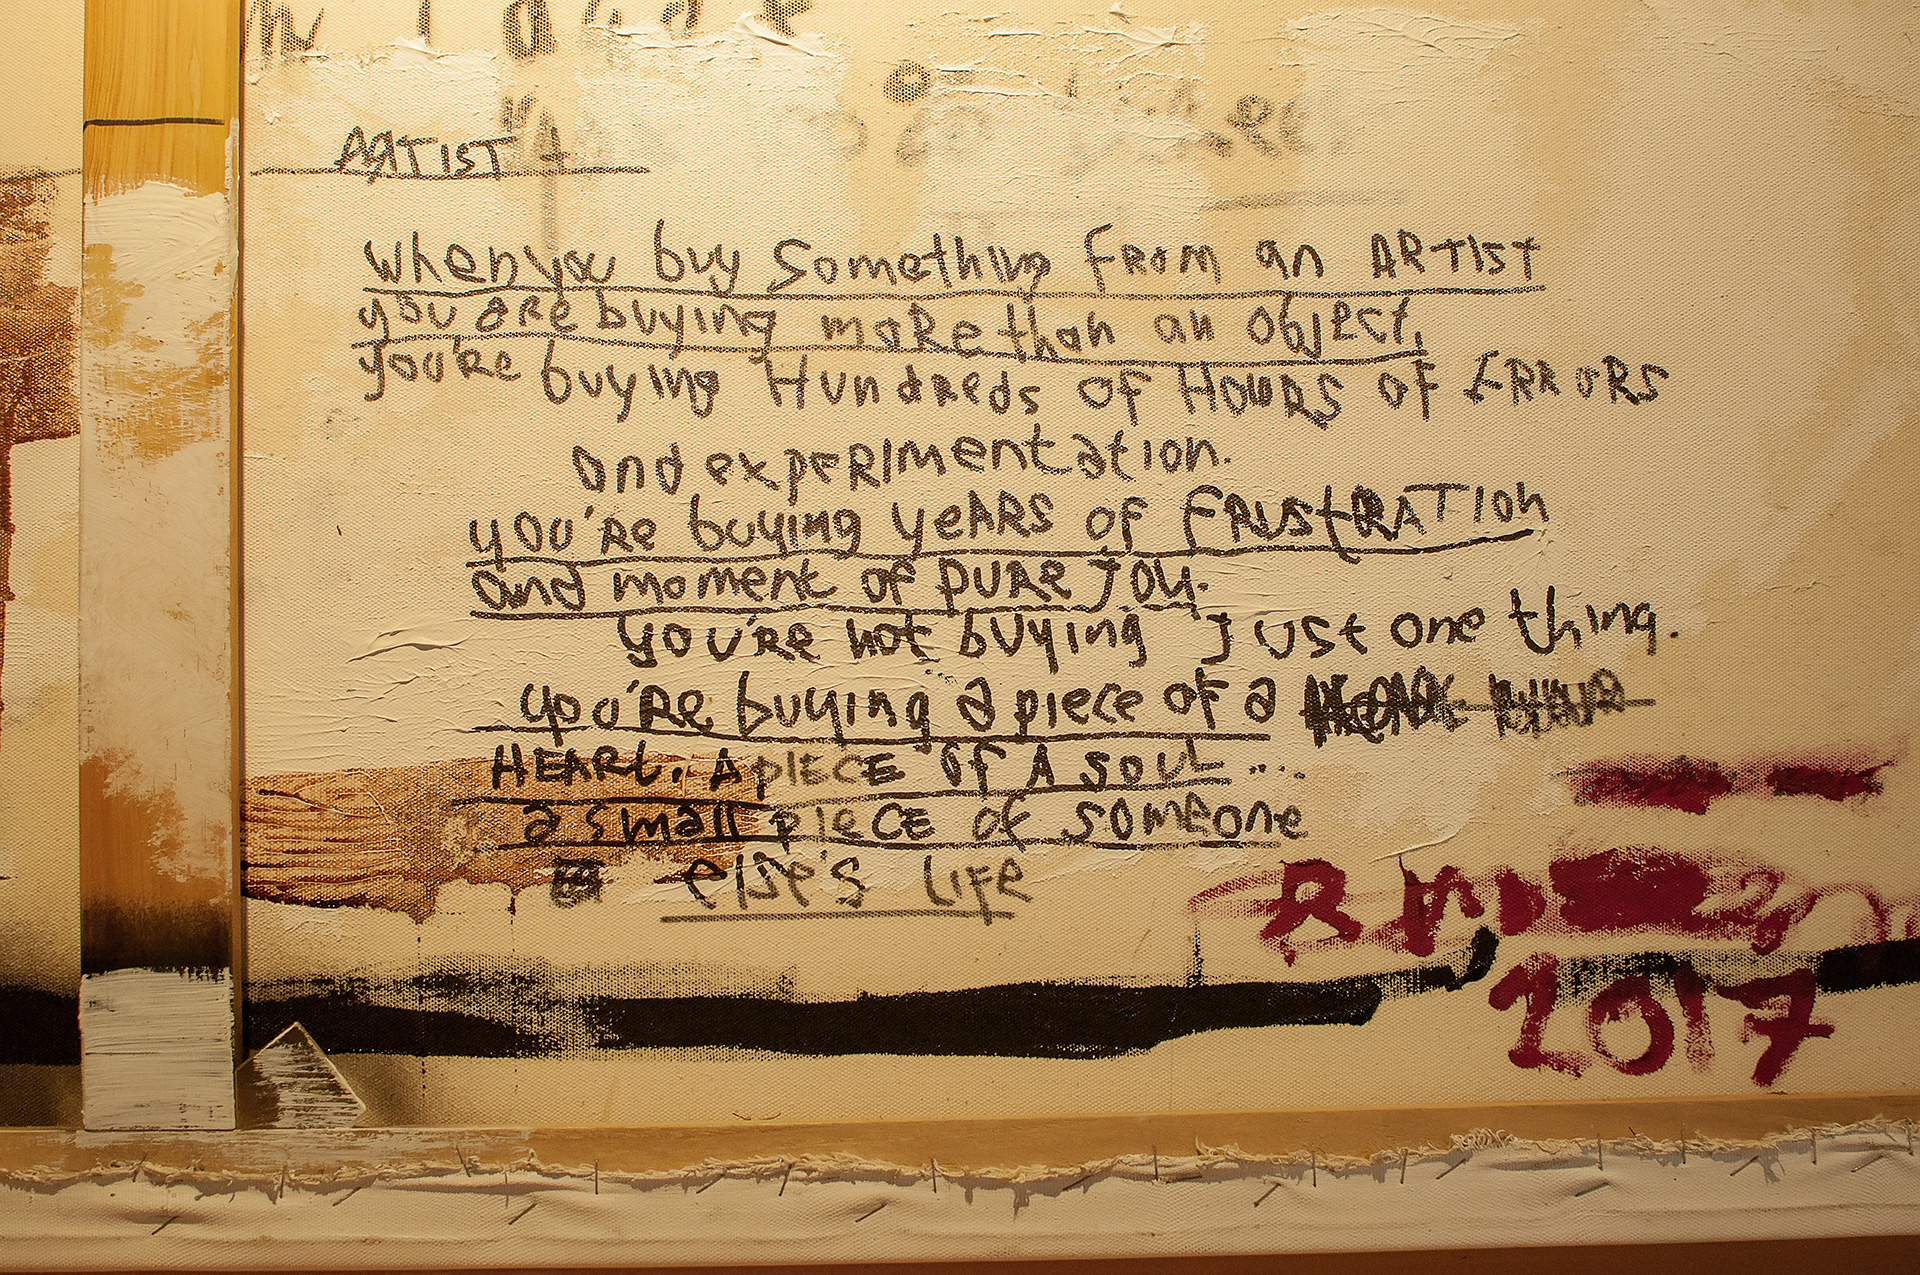 ARTIST
when you buy Something from an ARTIST
you are buying more than an object,
you're buying Hundreds of Hours of ERRORS
and experimentation.
you're buying years of frustration
and moment of pure joy.
you're not buying just one thing.
you're buying a piece of a
HEART. A PIECE of A SOUL ...
a small piece of someone
else's LIFE
2017